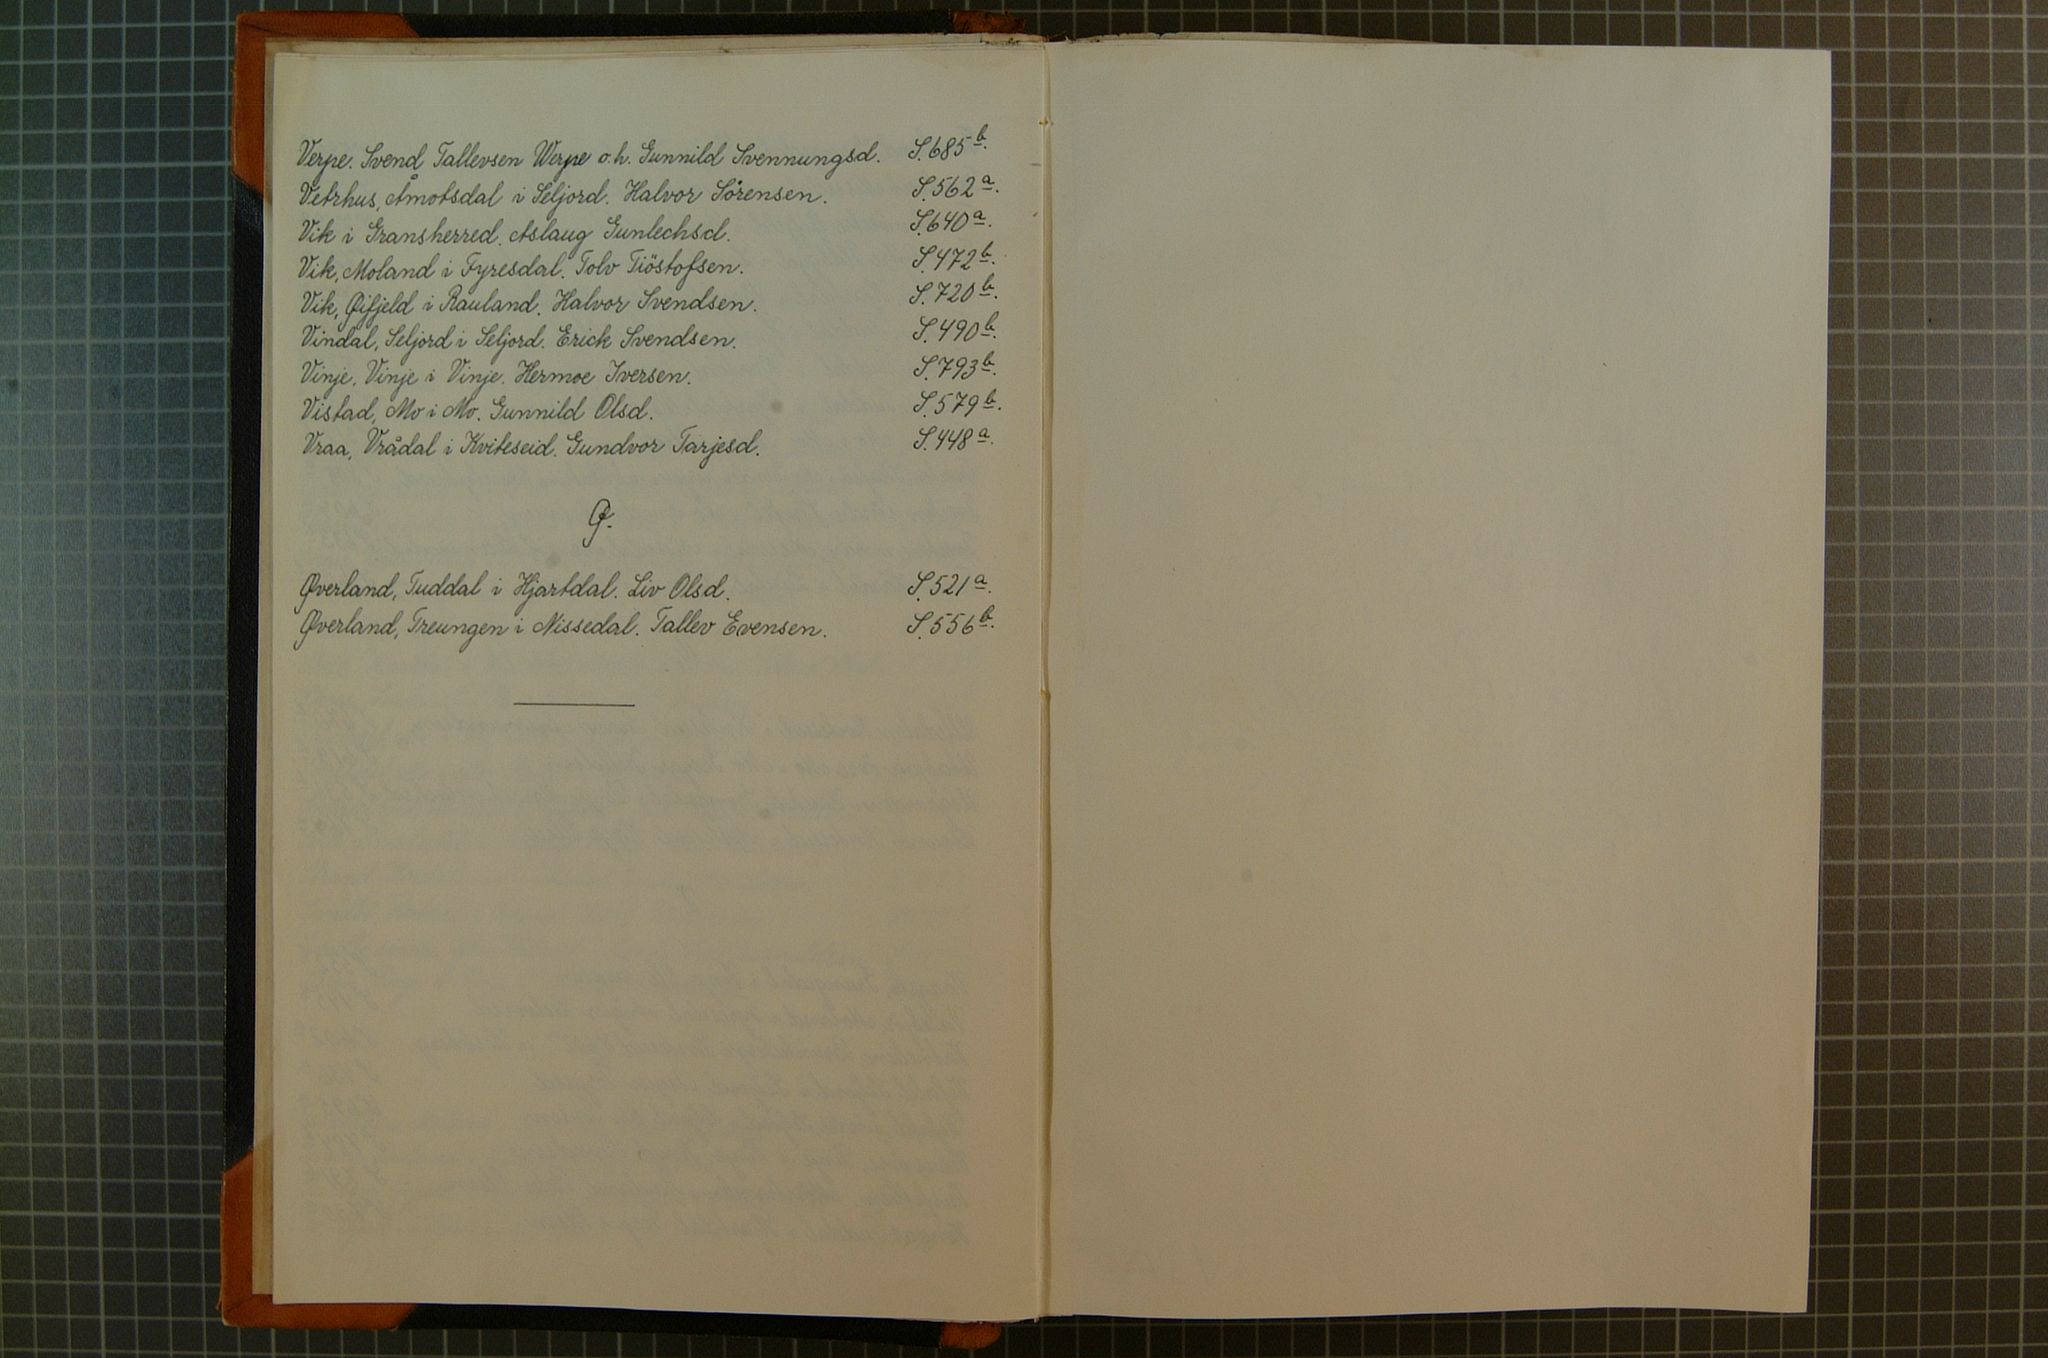 Verpe. Svend Tallevsen Werpe o.h. Gunnild Svennungsd. S.685b.
Vetrhus, Åmotsdal i Seljord. Halvor Sörensen. S.562a.
Vik i Gransherred. Aslaug Gunlechsd. S.640a.
Vik, Moland i Fyresdal. Tolv Tiöstofsen. S.472b.
Vik, Øifjeld i Rauland. Halvor Svendsen. S.720b.
Vindal, Seljord i Seljord. Erick Svendsen. S.490b.
Vinje, Vinje i Vinje. Hermoe Iversen. S.793b.
Vistad, Mo i Mo. Gunnild Olsd. S.579b.
Vraa, Vrådal i Kviteseid. Gundvor Tarjesd. S.448a.
Ø.
Øverland, Tuddal i Hjartdal. Liv Olsd. S.521a.
Øverland, Treungen i Nissedal. Tallev Evensen. S.556b.